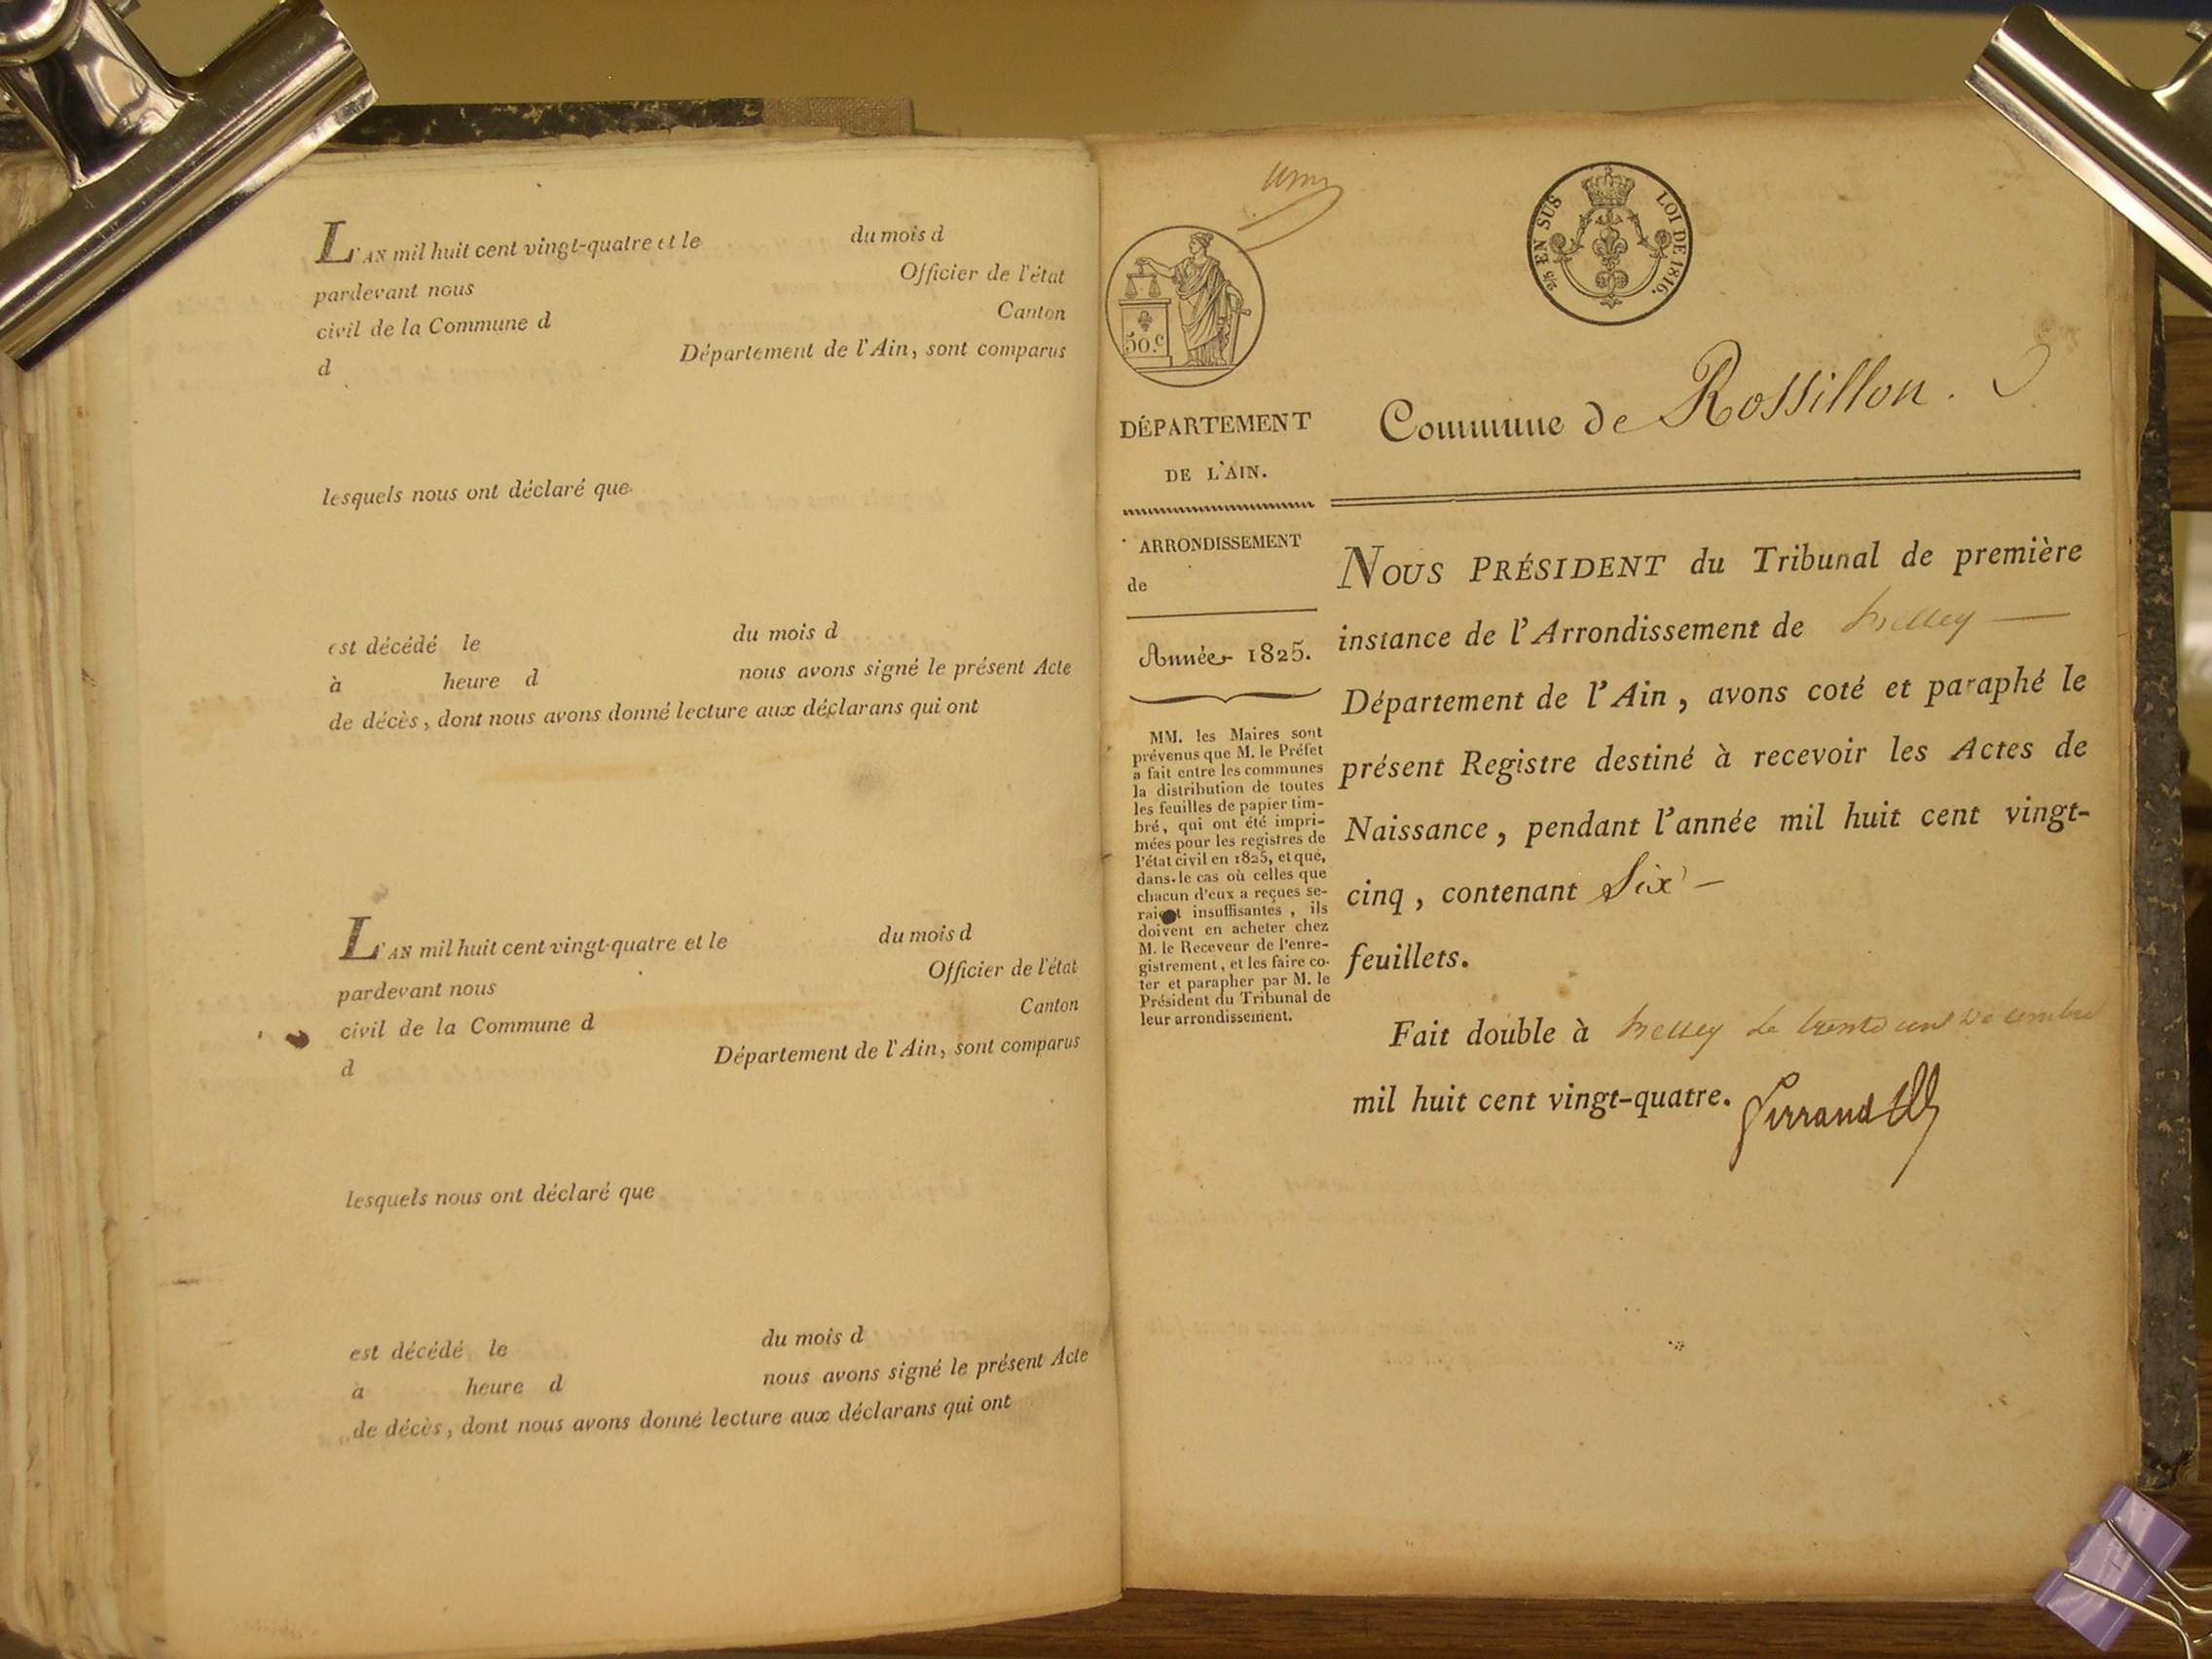 L'AN mil huit cent vingt-quatre et le du mois d
pardevant nous Officier de l'état
civil de la Commune d Canton
d Département de l'Ain, sont comparus
lesquels nous ont déclaré que
est décédé le du mois d
à heure d nous avons signé le présent Acte
de décès, dont nous avons donné lecture aux déclarans qui ont
L'AN mil huit cent vingt-quatre et le du mois d
pardevant nous Officier de l'état
civil de la Commune d Canton
d Département de l'Ain, sont comparus
lesquels nous ont déclaré que
est décédé le du mois d
à heure d nous avons signé le présent Acte
de décès, dont nous avons donné lecture aux déclarans qui ont
50.c
25 EN SUS LOI DE 1816.
DÉPARTEMENT
DE L'AIN.
ARRONDISSEMENT
de
Année 1825.
MM. les Maires sont
prévenus que M. le Préfet
a fait entre les communes
la distribution de toutes
les feuilles de papier tim-
bré, qui ont été impri-
mées pour les registres de
l'état civil en 1825, et que,
dans le cas où celles que
chacun d'eux a reçues se-
raient insuffisantes, ils
doivent en acheter chez
M. le Receveur de l'enre-
gistrement, et les faire co-
ter et parapher par M. le
Président du Tribunal de
leur arrondissement.
Commune de Rossillon.
NOUS PRÉSIDENT du Tribunal de première
instance de l'Arrondissement de Belley
Département de l'Ain, avons coté et paraphé le
présent Registre destiné à recevoir les Actes de
Naissance, pendant l'année mil huit cent vingt-
cinq, contenant Six
feuillets.
Fait double à Belley le trente un Décembre
mil huit cent vingt-quatre.